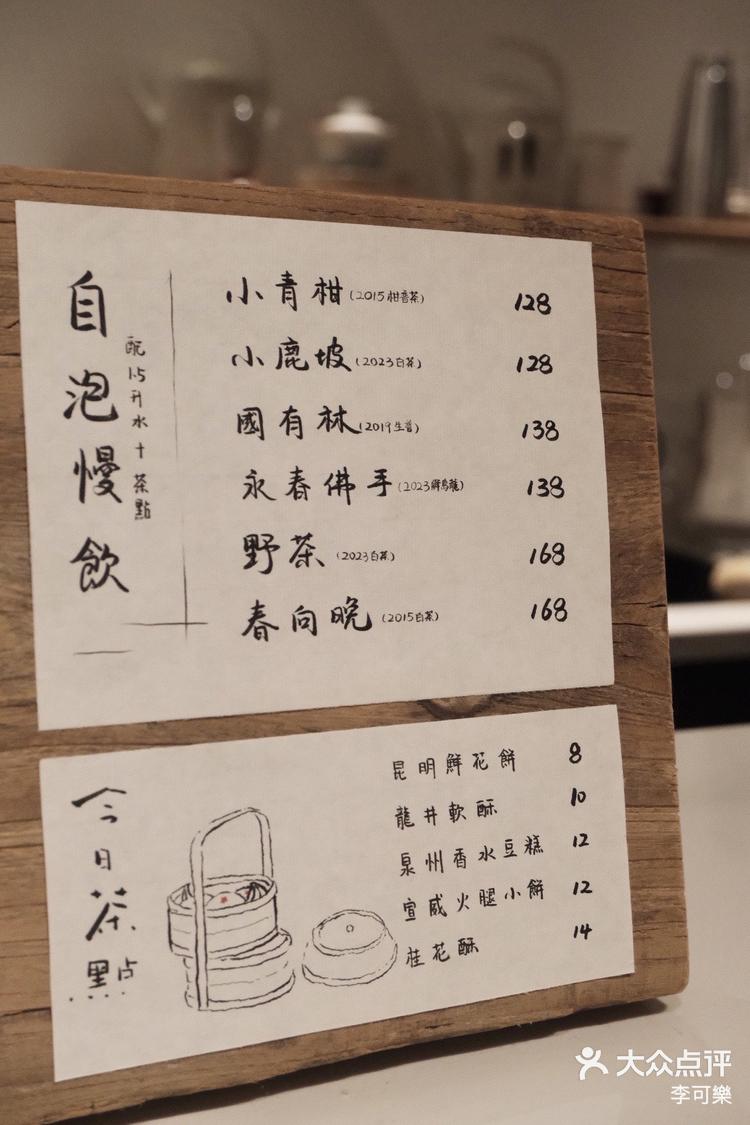 自泡慢飲
配1.5升水十茶點
小青柑(2015柑普茶) 128
小鹿坡(2023白茶) 128
國有林(2019生普) 138
永春佛手(2023烏龍) 138
野茶(2023白茶) 168
春向晚(2015白茶) 168
今日茶點
昆明鮮花餅 8
龍井軟酥 10
泉州香水豆糕 12
宣威火腿小餅 12
桂花酥 14
大众点评
李可樂